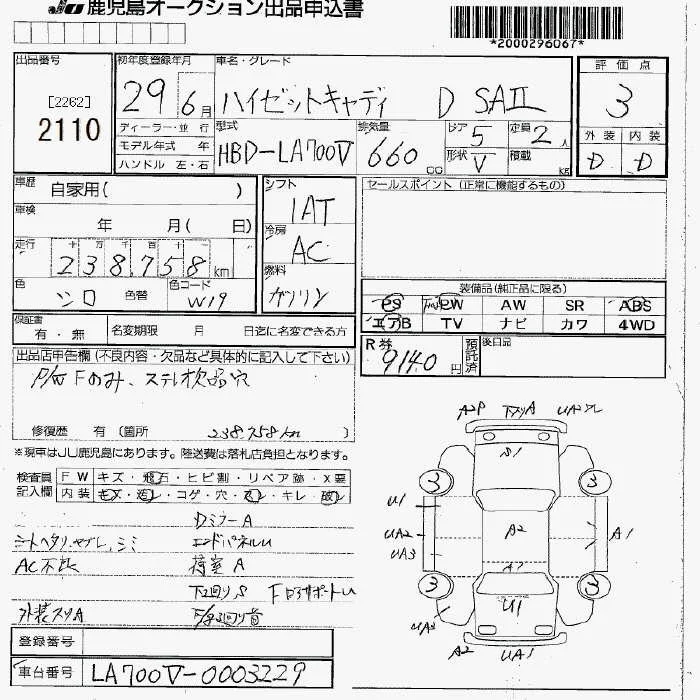 JU 鹿児島オークション出品申込書
*2000296067*
出品番号
[2262]
2110
初年度登録年月
29 6月
車名・グレード
ハイゼットキャディ D SAⅡ
評価点
3
外装 内装
D D
ディーラー・並 行
モデル年式 年
ハンドル 左・右
型式
HBD-LA700V
排気量
660 cc
ドア 5
形状 V
定員 2人
積載 kg
車歴 自家用( )
車検 年 月( 日)
走行 十 万 千 百 十 一
238,758 km
色 シロ 色替
色コード W19
シフト
IAT
冷房
AC
燃料
ガソリン
セールスポイント (正常に機能するもの)
装備品(純正品に限る)
PS PW AW SR ABS
エアB TV ナビ カワ 4WD
保証書 有・無
名変期限 月 日迄に名変できる方
R券 9140円
預託済
後日品
出品店申告欄 (不良内容・欠品など具体的に記入して下さい)
P/W Fのみ、ステレオ欠品穴
修復歴 有 (箇所 238,758km )
※現車はJU鹿児島にあります。陸送費は落札店負担となります。
検査員記入欄
FW キズ・飛石・ヒビ割・リペア跡・X要
内装 キズ・汚レ・コゲ・穴・・キレ・破レ
DミラーA
シートヘタリ、ヤブレ、シミ エンドパネルU
AC不良 荷室A
下回りS FロアサポートU
外装スリA
登録番号
車台番号 LA700V-0003229
A2P 下スリA
S1
3 3
U1
UA2 A2 A1
UA3
3 3
U1
UA3
A2 UA1